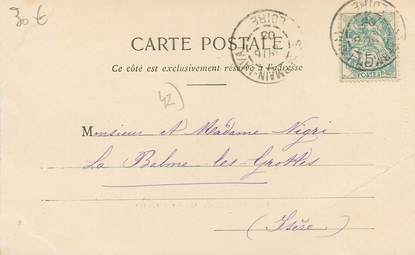 30 €
CARTE POSTALE
Ce côté est exclusivement réservé à l'adresse
42
Monsieur et Madame Nigri
La Balme-les-Grottes
(Isère)
GERMAIN-LAVAL
LOIRE
03
5
POSTES
LOIRE